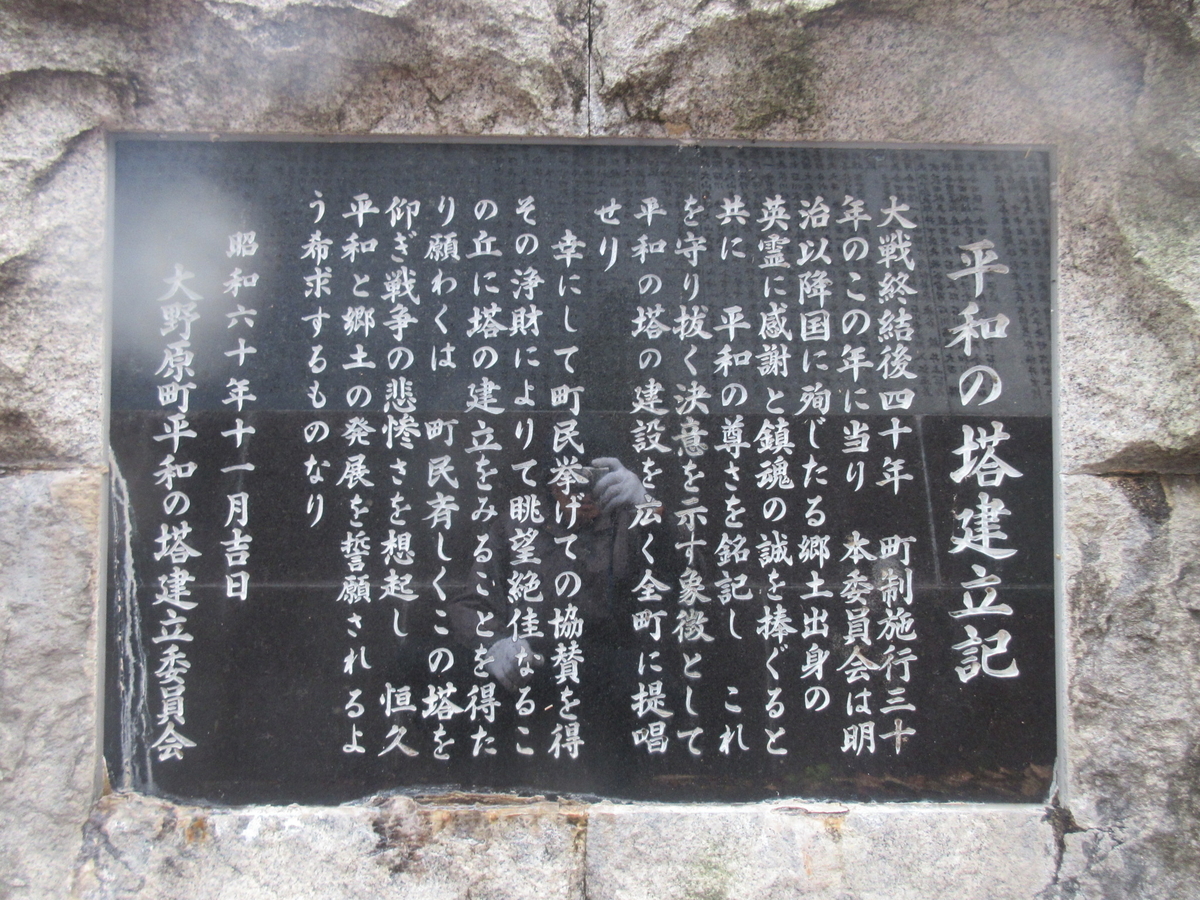 平和の塔建立記
大戦終結後四十年　町制施行三十
年のこの年に当り　本委員会は明
治以降国に殉じたる郷土出身の
英霊に感謝と鎮魂の誠を捧ぐると
共に　平和の尊さを銘記し　これ
を守り抜く決意を示す象徴として
平和の塔の建設を広く全町に提唱
せり
幸にして町民挙げての協賛を得
その浄財によりて眺望絶佳なるこ
の丘に塔の建立をみることを得た
り願わくは　町民斉しくこの塔を
仰ぎ戦争の悲惨さを想起し　恒久
平和と郷土の発展を誓願されるよ
う希求するものなり
昭和六十年十一月吉日
大野原町平和の塔建立委員会